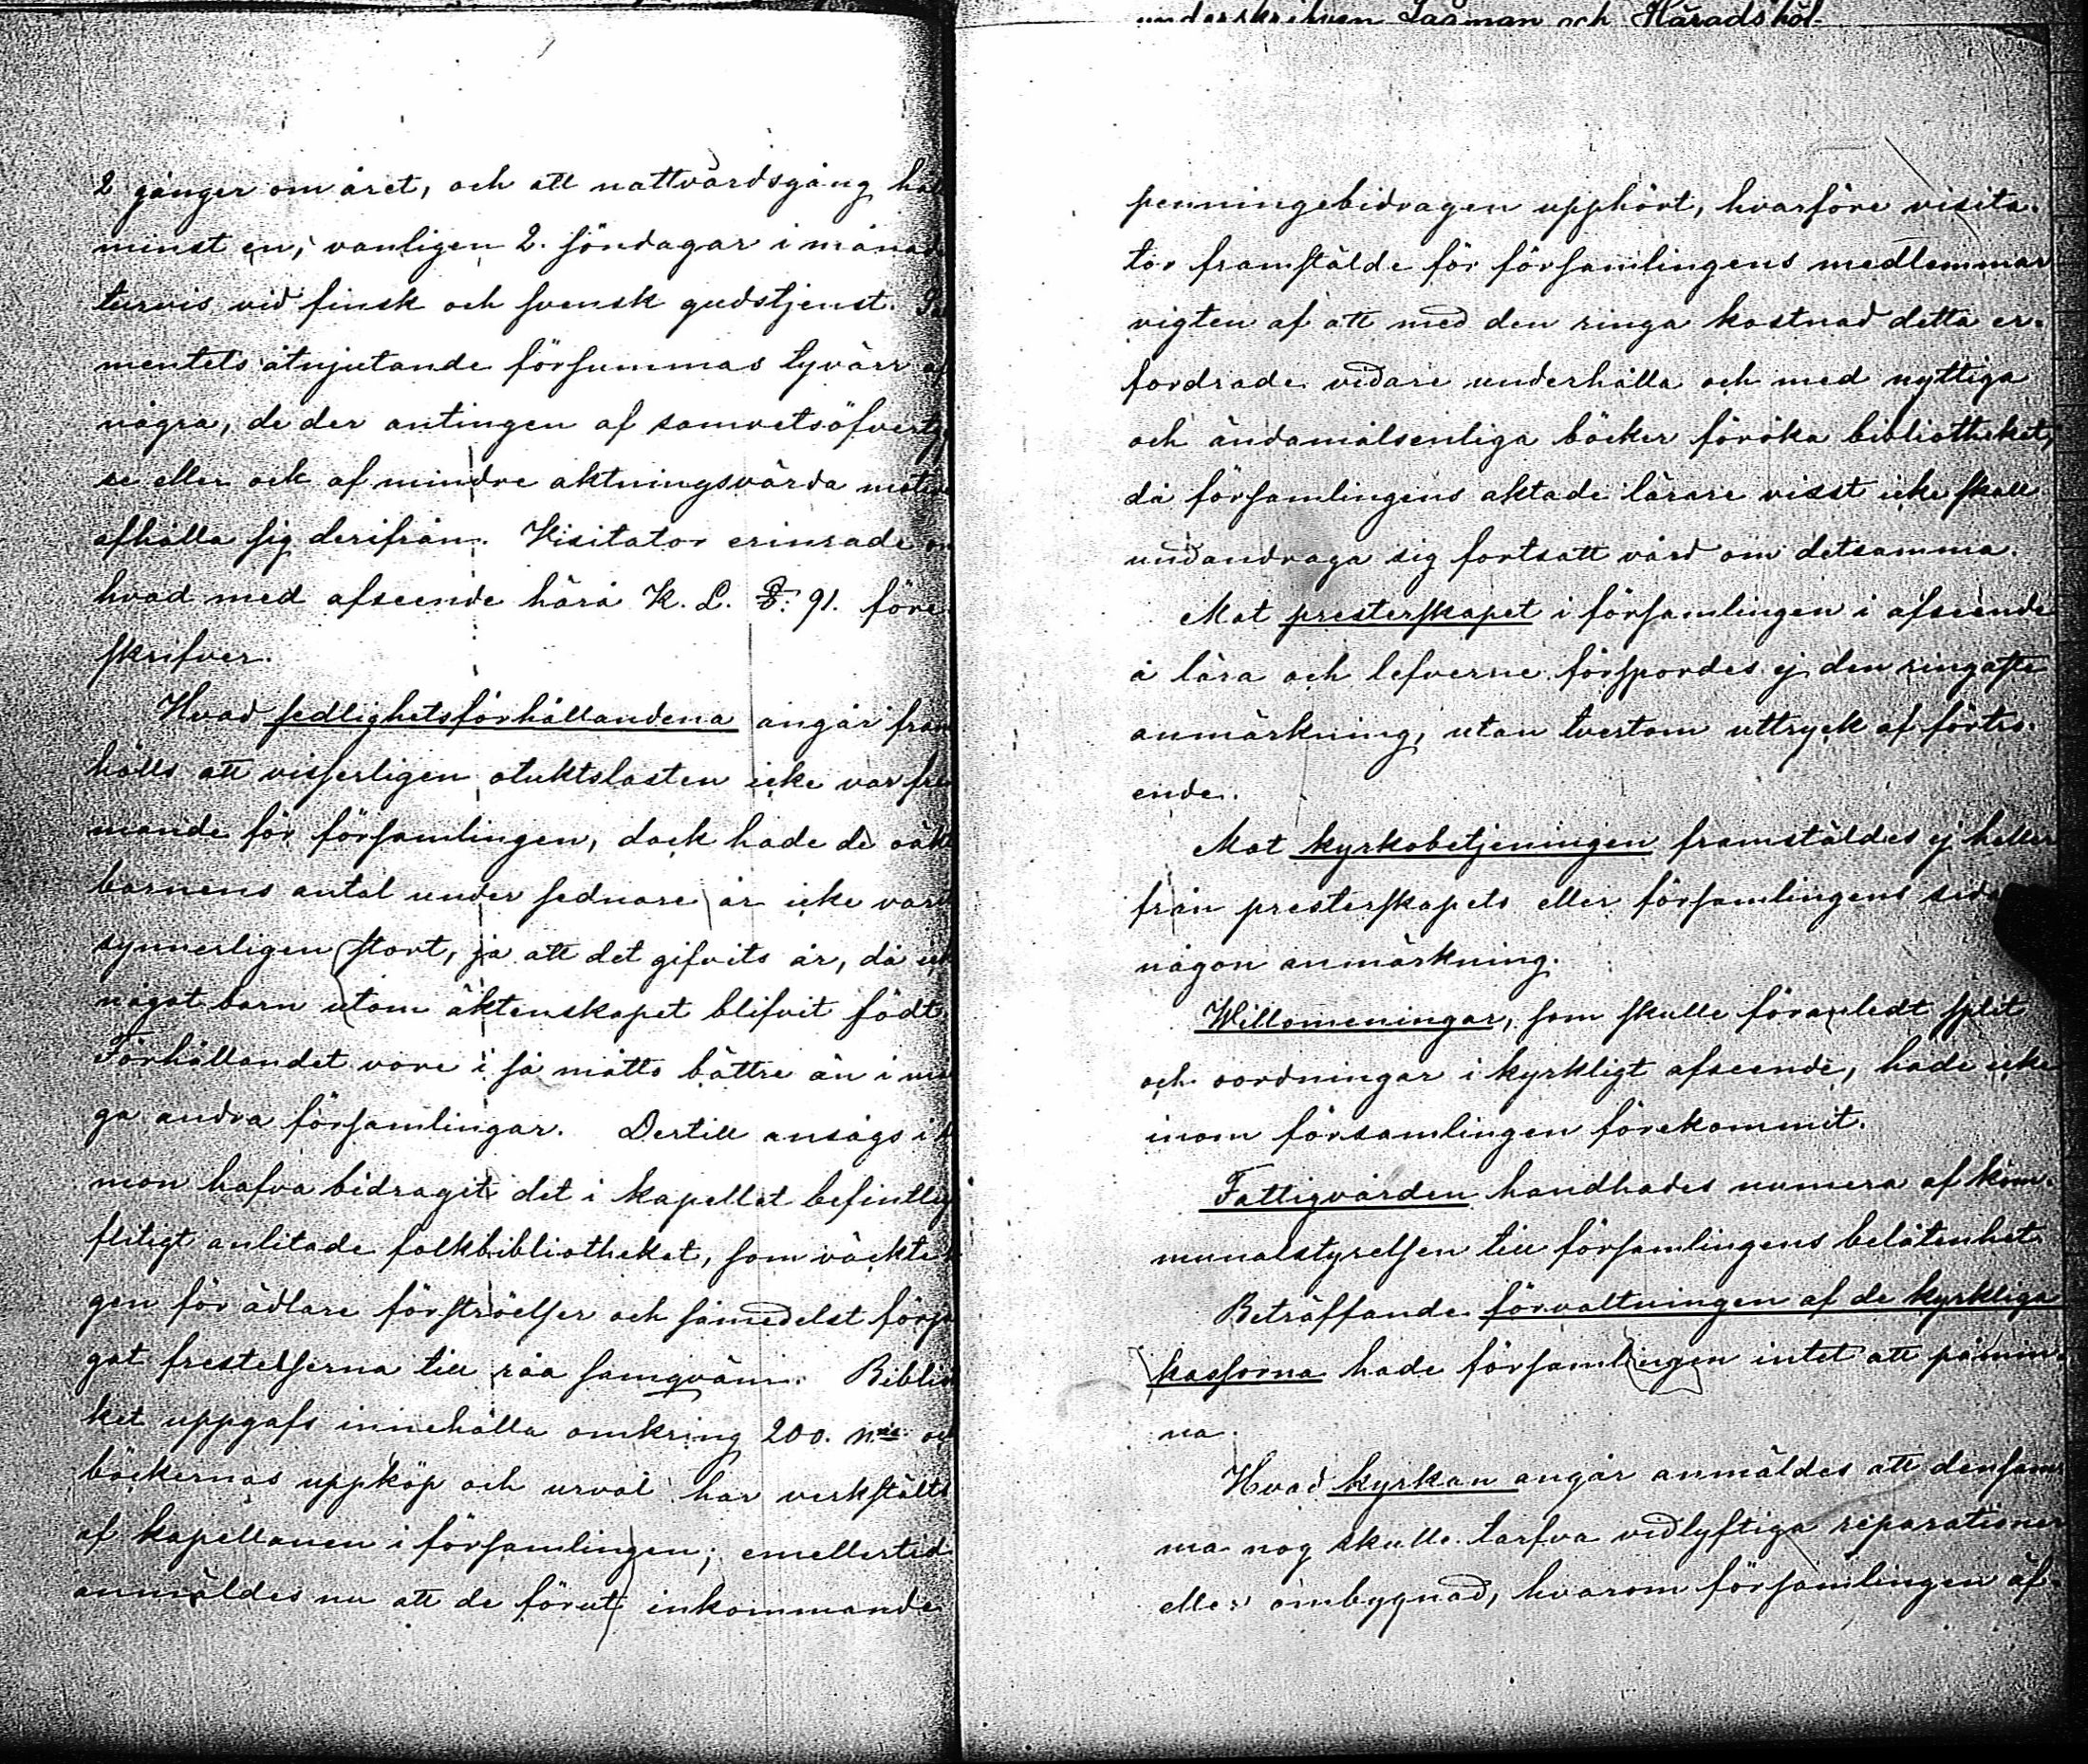 2 gånger om året, och att nattvardsgång hål
minst en, vanligen 2. söndagar i månad
turvis vid finsk och svensk gudstjenst.
mentets åtnjutande försummas tyvärr af
några, de der antingen af samvetsöfverty
se eller ock af mindre aktningsvärda motiv
afhålla sig derifrån. Visitator erinrade om
hvad med afseende härå K. L. §: 91. före
skrifver.
Hvad sedlighetsförhållandena angår fram
hölls att visserligen otuktslasten icke var frem
mande för församlingen, dock hade de oäkt
barnens antal under sednare år icke varit
synnerligen stort, ja att det gifvits år, då ick
något barn utom äktenskapet blifvit födt.
Förhållandet vore i så måtto bättre än i mån
ga andra församlingar. Dertill ansågs i
mon hafva bidragit det i kapellet befintlig
flitigt anlitade folkbibliotheket, som väckte
gen för ädlare förströelser och såmedelst förja
gat frestelserna till råa samqväm. Biblio
ket uppgafs innehålla omkring 200. nnr och
böckernas uppköp och urval har verkstälts
af kapellanen i församlingen; emellertid
anmäldes nu att de förut inkommande
underskrifven Saaman och Häradshöf-
penningebidragen upphört, hvarföre visita-
tor framstälde för församlingens medlemmar
vigten af att med den ringa kostnad detta er-
fordrade vidare underhålla och med nyttiga
och ändamålsenliga böcker föröka bibliotheket,
då församlingens aktade lärare visst icke skall
undandraga sig fortsatt vård om detsamma.
Mot presterskapet i församlingen i afseende
å lära och lefverne förspordes ej den ringaste
anmärkning, utan tvertom uttryck af förtro-
ende.
Mot kyrkobetjeningen framstäldes ej heller
från presterskapets eller församlingens sida
någon anmärkning.
Willomeningar, som skulle föranledt split
och oordningar i kyrkligt afseende, hade icke
inom församlingen förekommit.
Fattigvården handhades numera af kom-
munalstyrelsen till församlingens belåtenhet.
Beträffande förvaltningen af de kyrkliga
kassorna hade församlingen intet att påmin-
na.
Hvad kyrkan angår anmäldes att densam-
ma nog skulle tarfva vidlyftiga reparationer
eller ombygnad, hvarom församlingen äf-